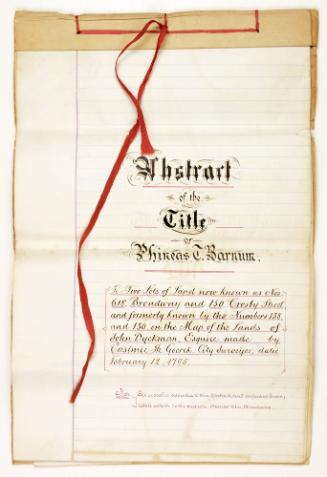 Abstract
of the
Title
of
Phineas T. Barnum.
To Two Lots of Land now known as Nos.
618 Broadway and 150 Crosby Street,
and formerly known by the Numbers 138,
and 150 on the Map of the Lands of
John Dyckman, Esquire made by
Casimir Th. Goerck City Surveyor, dated
February 12, 1795